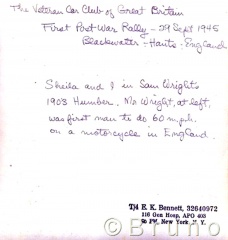 The Veteran Car Club of Great Britain
First Post War Rally - 29 Sept 1945
Blackwater - Hants - England
Sheila and I in Sam Wrights
1903 Humber. Mr Wright, at left,
was first man to do 60 m.p.h.
on a motorcycle in England.
T/4 E. K. Bennett, 32640972
116 Gen Hosp, APO 403
% PM, New York, N. Y.
© Bruno